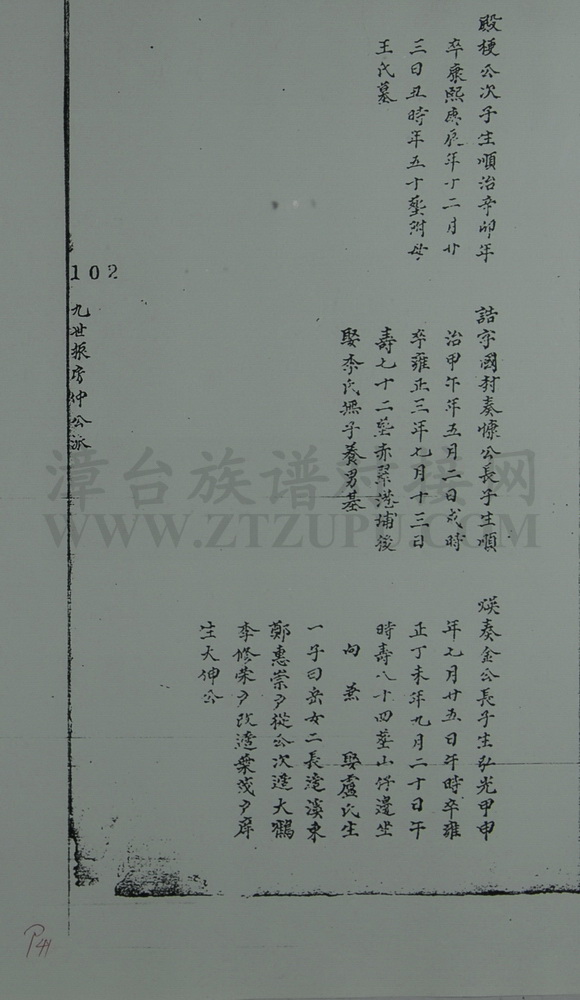 殿梗公次子生順治辛卯年
卒康熙庚辰年十二月廿
三日丑時年五十塟附母
王氏墓
誥字國封奏慷公長子生順
治甲午年五月二日戌時
卒雍正三年七月十三日
壽七十二塟赤翠港埔後
娶李氏撫子養男基
煐奏金公長子生弘光甲申
年七月廿五日午時卒雍
正丁未年九月二十日午
時壽八十四塟山仔邊坐
向 兼 娶盧氏生
一子曰岳女二長適溪東
鄭惠崇 從公次適大鶴
李修榮 改適葉茂 庠
生大伸公
102
九世振房仲公派
漳台族谱对接网
WWW.ZTZUPU.COM
P41